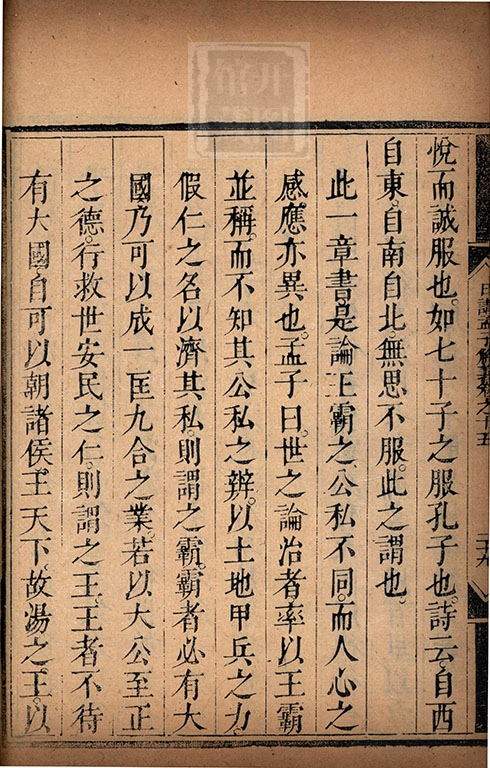 悅而誠服也。如七十子之服孔子也。詩云。自西
自東。自南自北。無思不服。此之謂也。
此一章書。是論王霸之公私不同。而人心之
感應亦異也。孟子曰。世之論治者。率以王霸
並稱。而不知其公私之辨。以土地甲兵之力。
假仁之名以濟其私。則謂之霸。霸者必有大
國。乃可以成一匡九合之業。若以大公至正
之德。行救世安民之仁。則謂之王。王者不待
有大國。自可以朝諸侯。王天下。故湯之王。以
日講孟子解義卷之十五